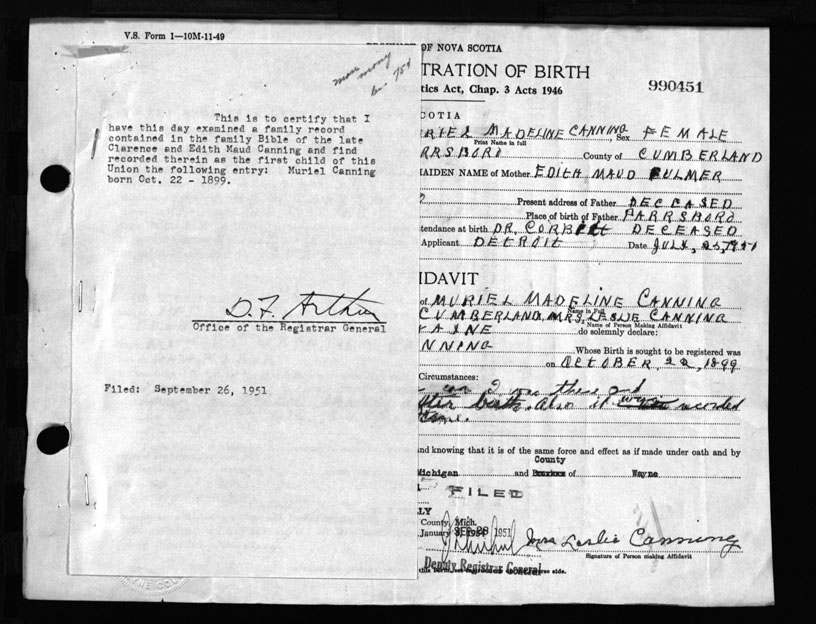 V.S. Form 1—10M-11-49
OF NOVA SCOTIA
TRATION OF BIRTH
tics Act, Chap. 3 Acts 1946
990451
This is to certify that I
have this day examined a family record
contained in the family Bible of the late
Clarence and Edith Maud Canning and find
recorded therein as the first child of this
Union the following entry: Muriel Canning
born Oct. 22 - 1899.
D. F. Arthur
Office of the Registrar General
Filed: September 26, 1951
COTIA
RIEL MADELINE CANNING Sex FEMALE
Print Name in full
RRSBORO County of CUMBERLAND
AIDEN NAME of Mother EDITH MAUD FULMER
Present address of Father DECEASED
Place of birth of Father PARRSBORO
tendance at birth DR. CORBETT DECEASED
Applicant DETROIT Date JULY 25, 1951
IDAVIT
of MURIEL MADELINE CANNING
Name in Full
CUMBERLAND, MRS. LESLIE CANNING
Name of Person Making Affidavit
do solemnly declare:
NNING Whose Birth is sought to be registered was
on OCTOBER 22, 1899
Circumstances:
I was there and
after birth. Also it was recorded
and knowing that it is of the same force and effect as if made under oath and by
County
Michigan and of Wayne
FILED
LY
County, Mich.
January 1954
SEP 26 1951
Mrs Leslie Canning
Signature of Person making Affidavit
Deputy Registrar General